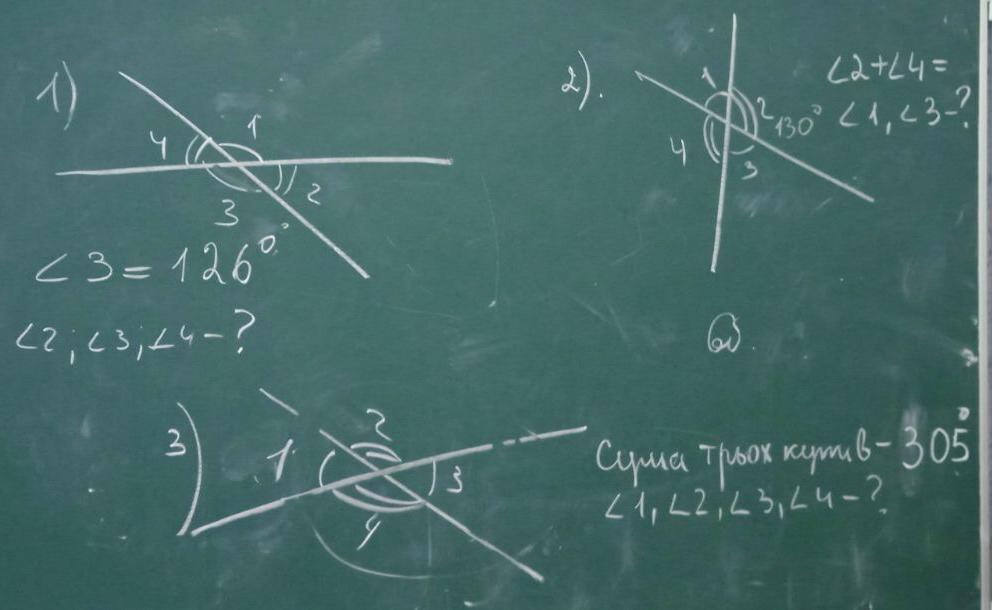 1)
4 1
2
3
∠3 = 126°
∠2; ∠3; ∠4 - ?
2).
1
2 130°
4
3
∠2+∠4=
∠1, ∠3 - ?
3)
2
1
3
4
Сума трьох кутів - 305°
∠1, ∠2, ∠3, ∠4 - ?